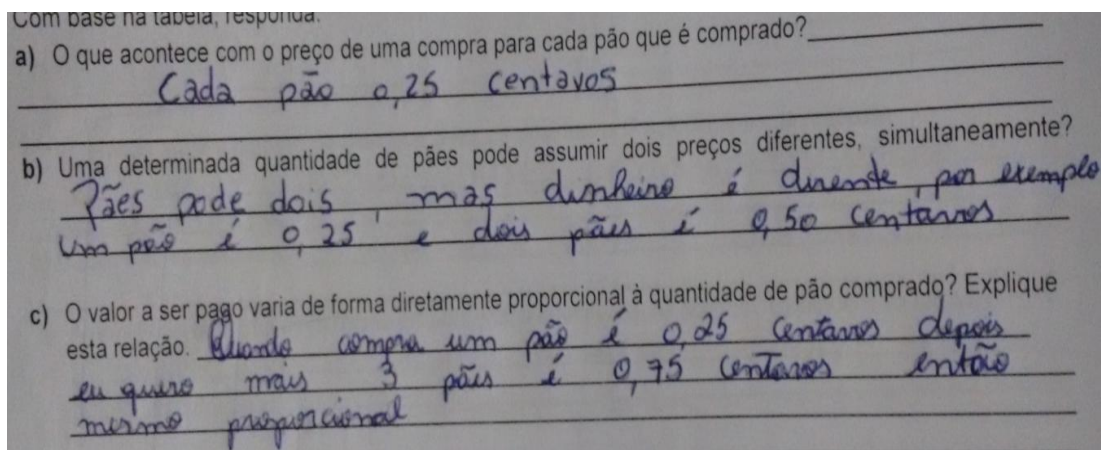 Com base na tabela, responda.
a) O que acontece com o preço de uma compra para cada pão que é comprado?
Cada pão 0,25 centavos
b) Uma determinada quantidade de pães pode assumir dois preços diferentes, simultaneamente?
Pães pode dois, mas dinheiro é , por exemplo
um pão é 0,25 e dois pães é 0,50 centavos
c) O valor a ser pago varia de forma diretamente proporcional à quantidade de pão comprado? Explique
esta relação. Quando compra um pão é 0,25 centavos depois
eu quero mais 3 pães é 0,75 centavos então
mesmo proporcional